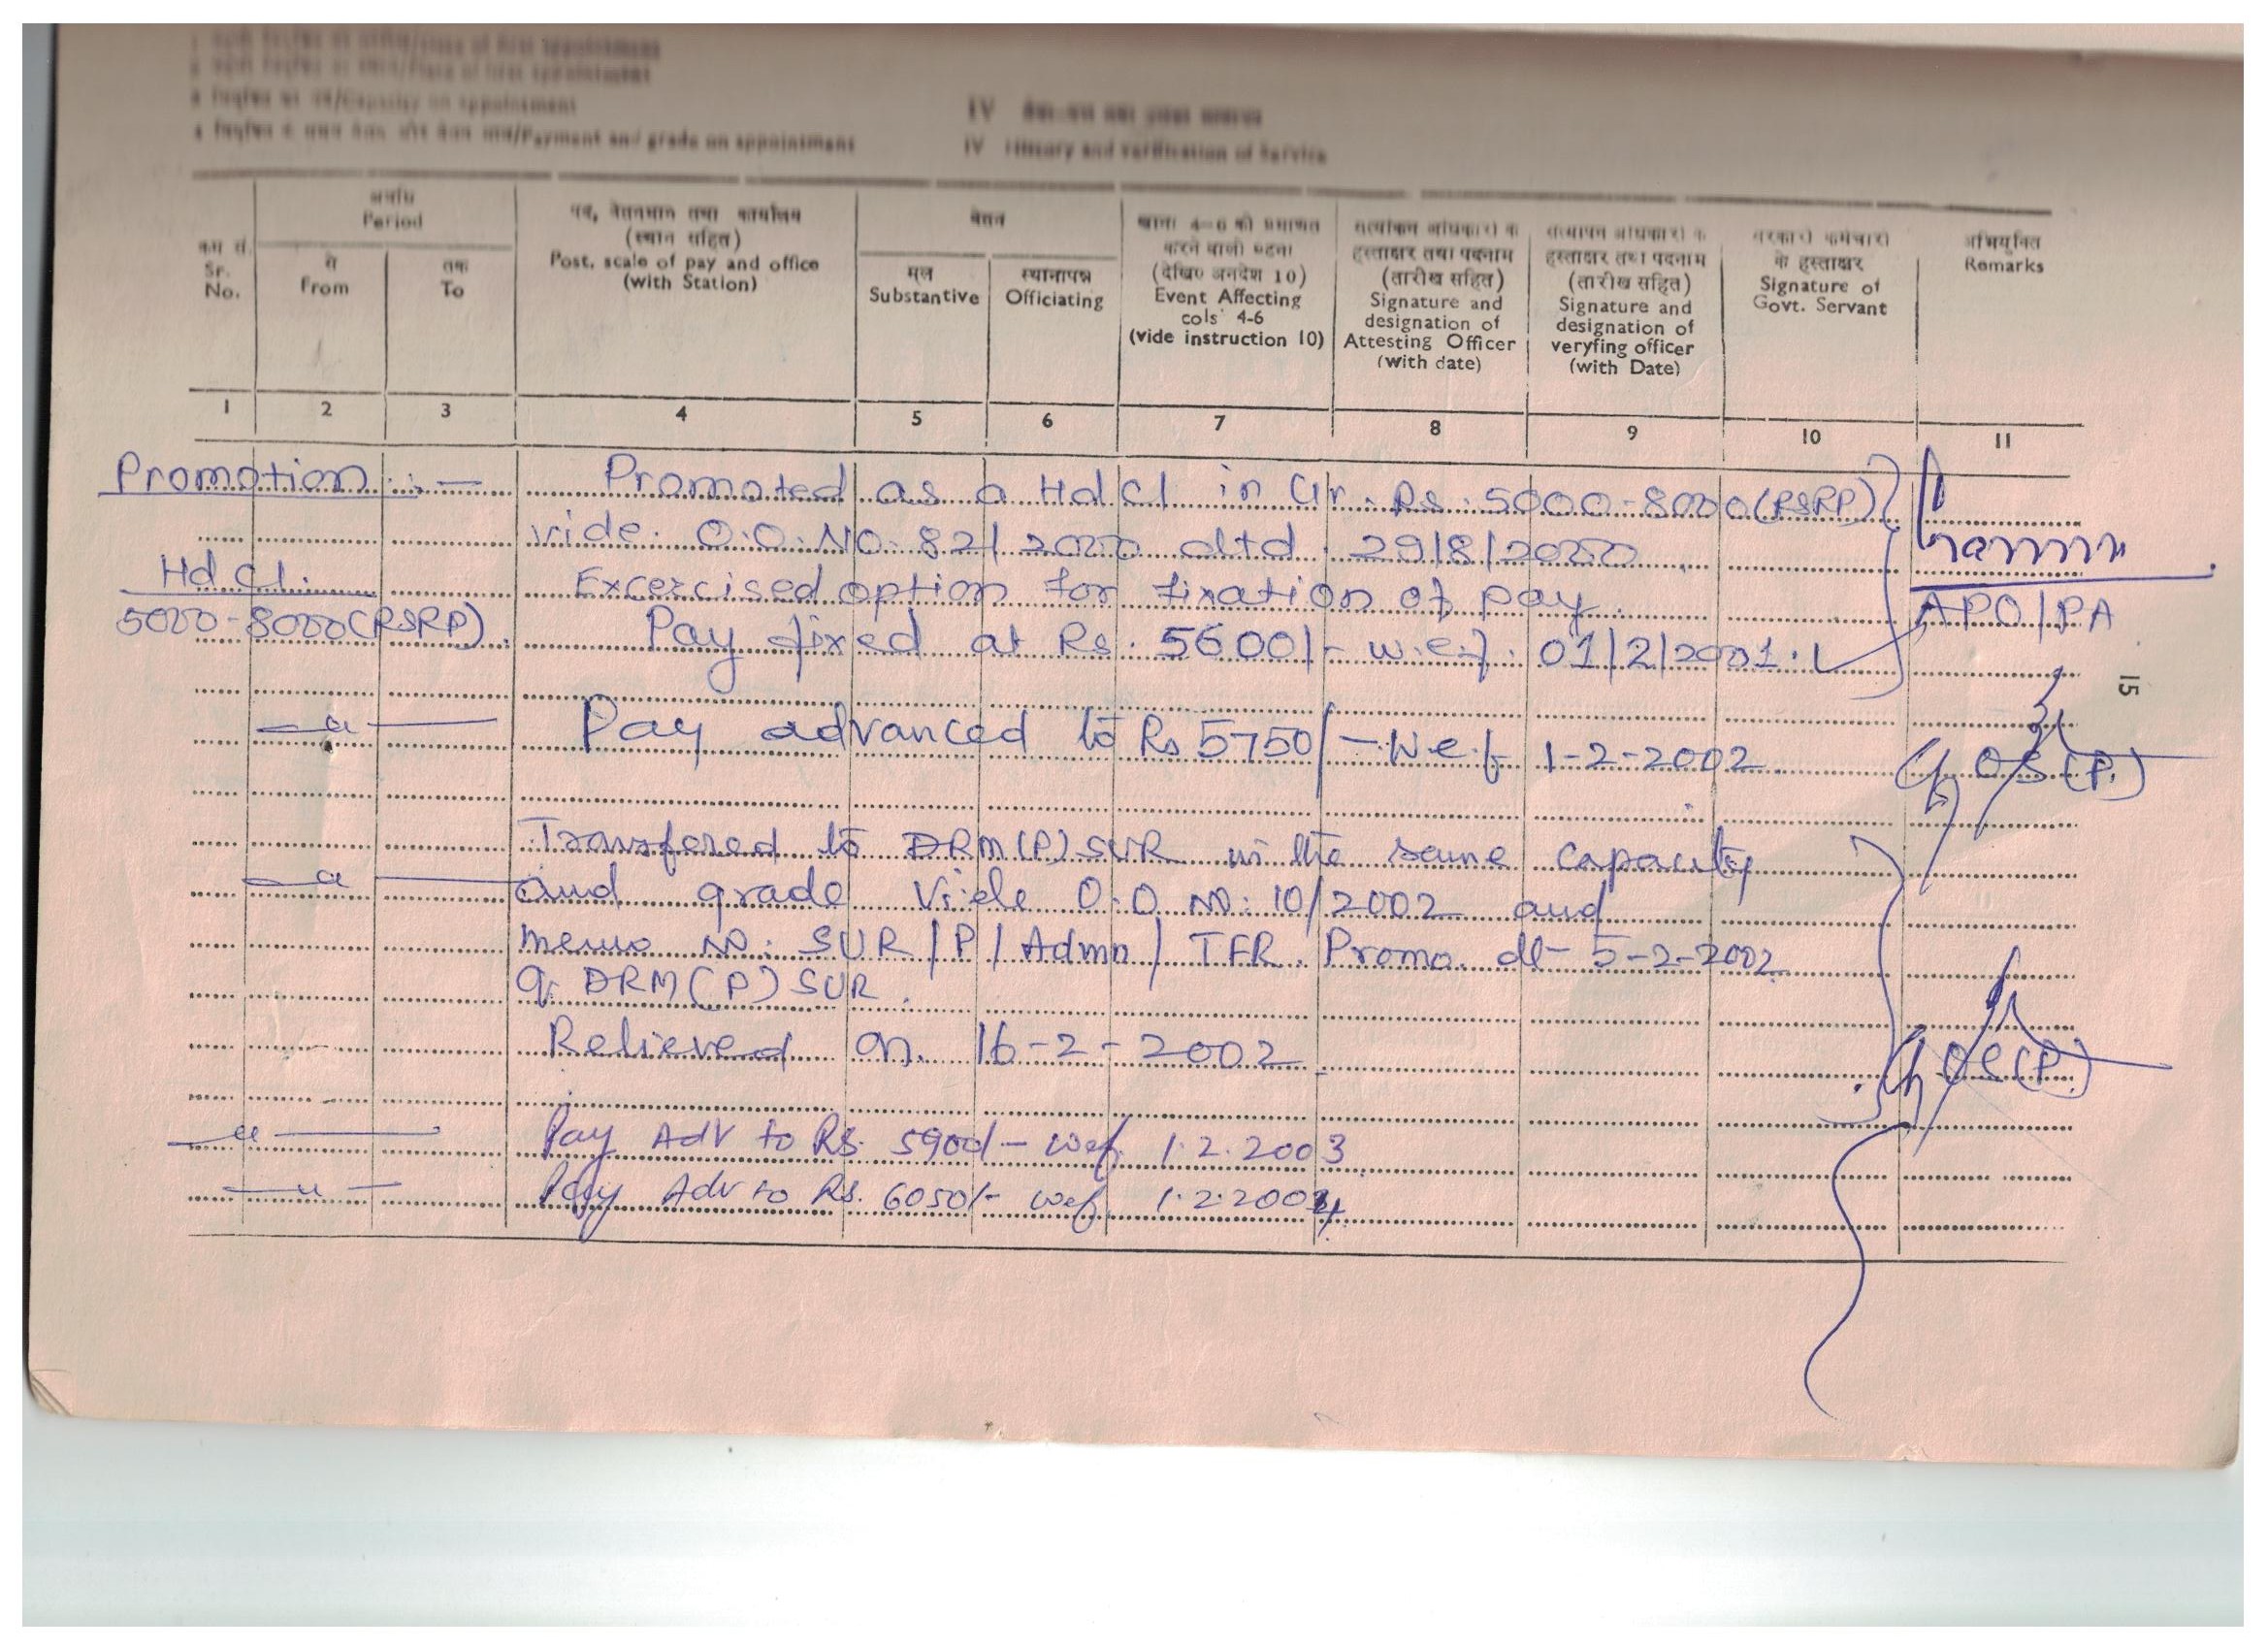 /Capacity on appointment
/Payment and grade on appointment
IV
IV History and verification of Service
अवधि
Period
क्रम सं.
Sr. No.
से
From
तक
To
पद, वेतनमान तथा कार्यालय
(स्थान सहित)
Post. scale of pay and office
(with Station)
वेतन
मूल
Substantive
स्थानापन्न
Officiating
खाना 4-6 को प्रभावित
करने वाली घटना
(देखिए अनदेश 10)
Event Affecting
cols 4-6
(vide instruction 10)
सत्यांकन अधिकारी के
हस्ताक्षर तथा पदनाम
(तारीख सहित)
Signature and
designation of
Attesting Officer
(with date)
सत्यापन अधिकारी के
हस्ताक्षर तथा पदनाम
(तारीख सहित)
Signature and
designation of
veryfing officer
(with Date)
सरकारी कर्मचारी
के हस्ताक्षर
Signature of
Govt. Servant
अभियुक्ति
Remarks
1 2 3 4 5 6 7 8 9 10 11
Promotion :- Promoted as a Hd Cl in Gr. Rs. 5000-8000(RSRP)
vide. O.O. No. 82/2000 dtd. 29/8/2000
Hd. Cl. Excercised option for fixation of pay.
5000-8000(RSRP). Pay fixed at Rs. 5600/- w.e.f. 01/2/2001.
APO/PA
15
—"— Pay advanced to Rs 5750/- w.e.f 1-2-2002
Ch OS(P.)
Transfered to DRM(P)SUR in the same capacity
—"— and grade vide O.O No: 10/2002 and
memo No: SUR/P/Admn/TFR. Promo. dt- 5-2-2002
of DRM(P)SUR.
Relieved on. 16-2-2002
Ch OS(P.)
—"— Pay Adv to Rs. 5900/- wef. 1.2.2003
—"— Pay Adv to Rs. 6050/- wef. 1.2.2004